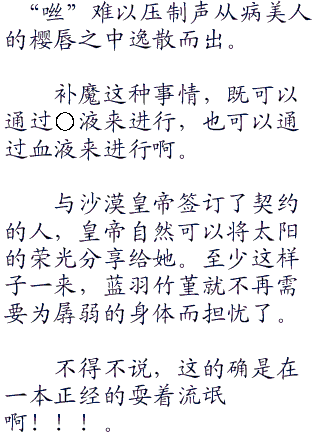 “咝”难以压制声从病美人
的樱唇之中逸散而出。
补魔这种事情，既可以
通过〇液来进行，也可以通
过血液来进行啊。
与沙漠皇帝签订了契约
的人，皇帝自然可以将太阳
的荣光分享给她。至少这样
子一来，蓝羽竹堇就不再需
要为孱弱的身体而担忧了。
不得不说，这的确是在
一本正经的耍着流氓
啊！！！。